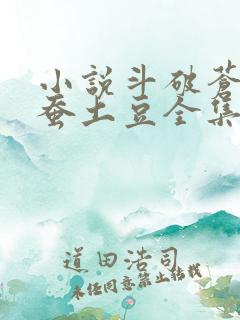 小説斗破蒼
蚕土豆全集
道田浩司
未经同意禁止转载